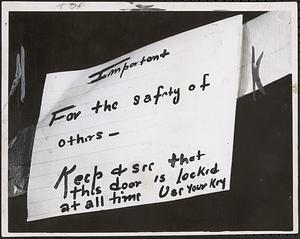 TOP
Important
For the safty of
others —
Keep & see that
this door is locked
at all time Use Your Key